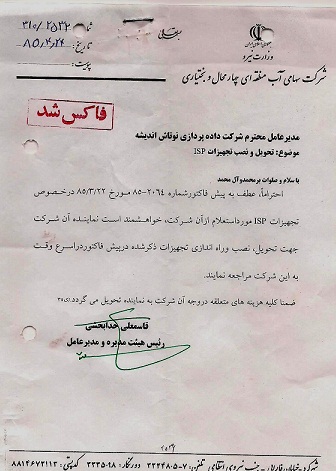 وزارت نیرو
شرکت سهامی آب منطقه ای چهارمحال و بختیاری
۳۱۰/۲۵۳۲
تاریخ: ۸۵/۴/۲۴
پیوست:
فاکس شد
مدیرعامل محترم شرکت داده پردازی نوتاش اندیشه
موضوع: تحویل و نصب تجهیزات ISP
با سلام و صلوات بر محمد و آل محمد
احتراماً، عطف به پیش فاکتور شماره ۲۰۶۴-۸۵ مورخ ۸۵/۳/۲۲ درخصوص
تجهیزات ISP مورد استعلام ازآن شرکت، خواهشمند است نماینده آن شرکت
جهت تحویل، نصب وراه اندازی تجهیزات ذکرشده درپیش فاکتور دراسرع وقت
به این شرکت مراجعه نمایند.
ضمنا کلیه هزینه های متعلقه دروجه آن شرکت به نماینده تحویل می گردد.
قاسمعلی خدابخشی
رئیس هیئت مدیره و مدیرعامل
شهرکرد - خیابان فارابی - جنب نیروی انتظامی تلفن: ۷-۳۳۳۴۸۰۵ دورنگار: ۳۳۳۵۰۹۸ کدپستی: ۸۸۱۴۶۷۳۱۱۳